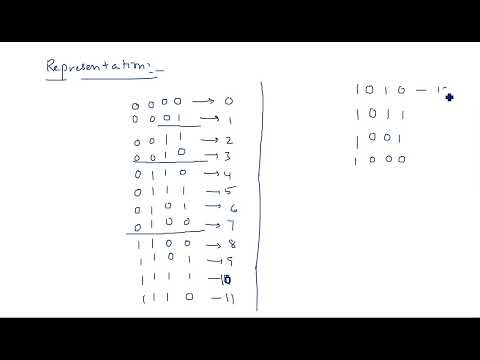 Representation:-
0 0 0 0 → 0
0 0 0 1 → 1
0 0 1 1 → 2
0 0 1 0 → 3
0 1 1 0 → 4
0 1 1 1 → 5
0 1 0 1 → 6
0 1 0 0 → 7
1 1 0 0 → 8
1 1 0 1 → 9
1 1 1 1 - 10
1 1 1 0 - 11
1 0 1 0 -
1 0 1 1
1 0 0 1
1 0 0 0